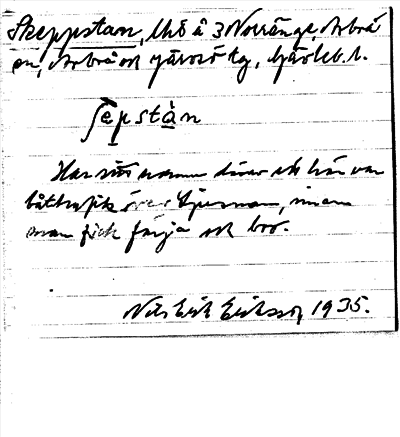 Skeppstan, Ute å 3 Norränge, Arbrå
sn, Arbrå och Järvsö tg, Gävleb. l.
ʃepstàn
Har sitt namn därav att här var
båttrafik över Ljusnan, innan
man fick färja och bro.
Nils Erik Eriksson, 1935.